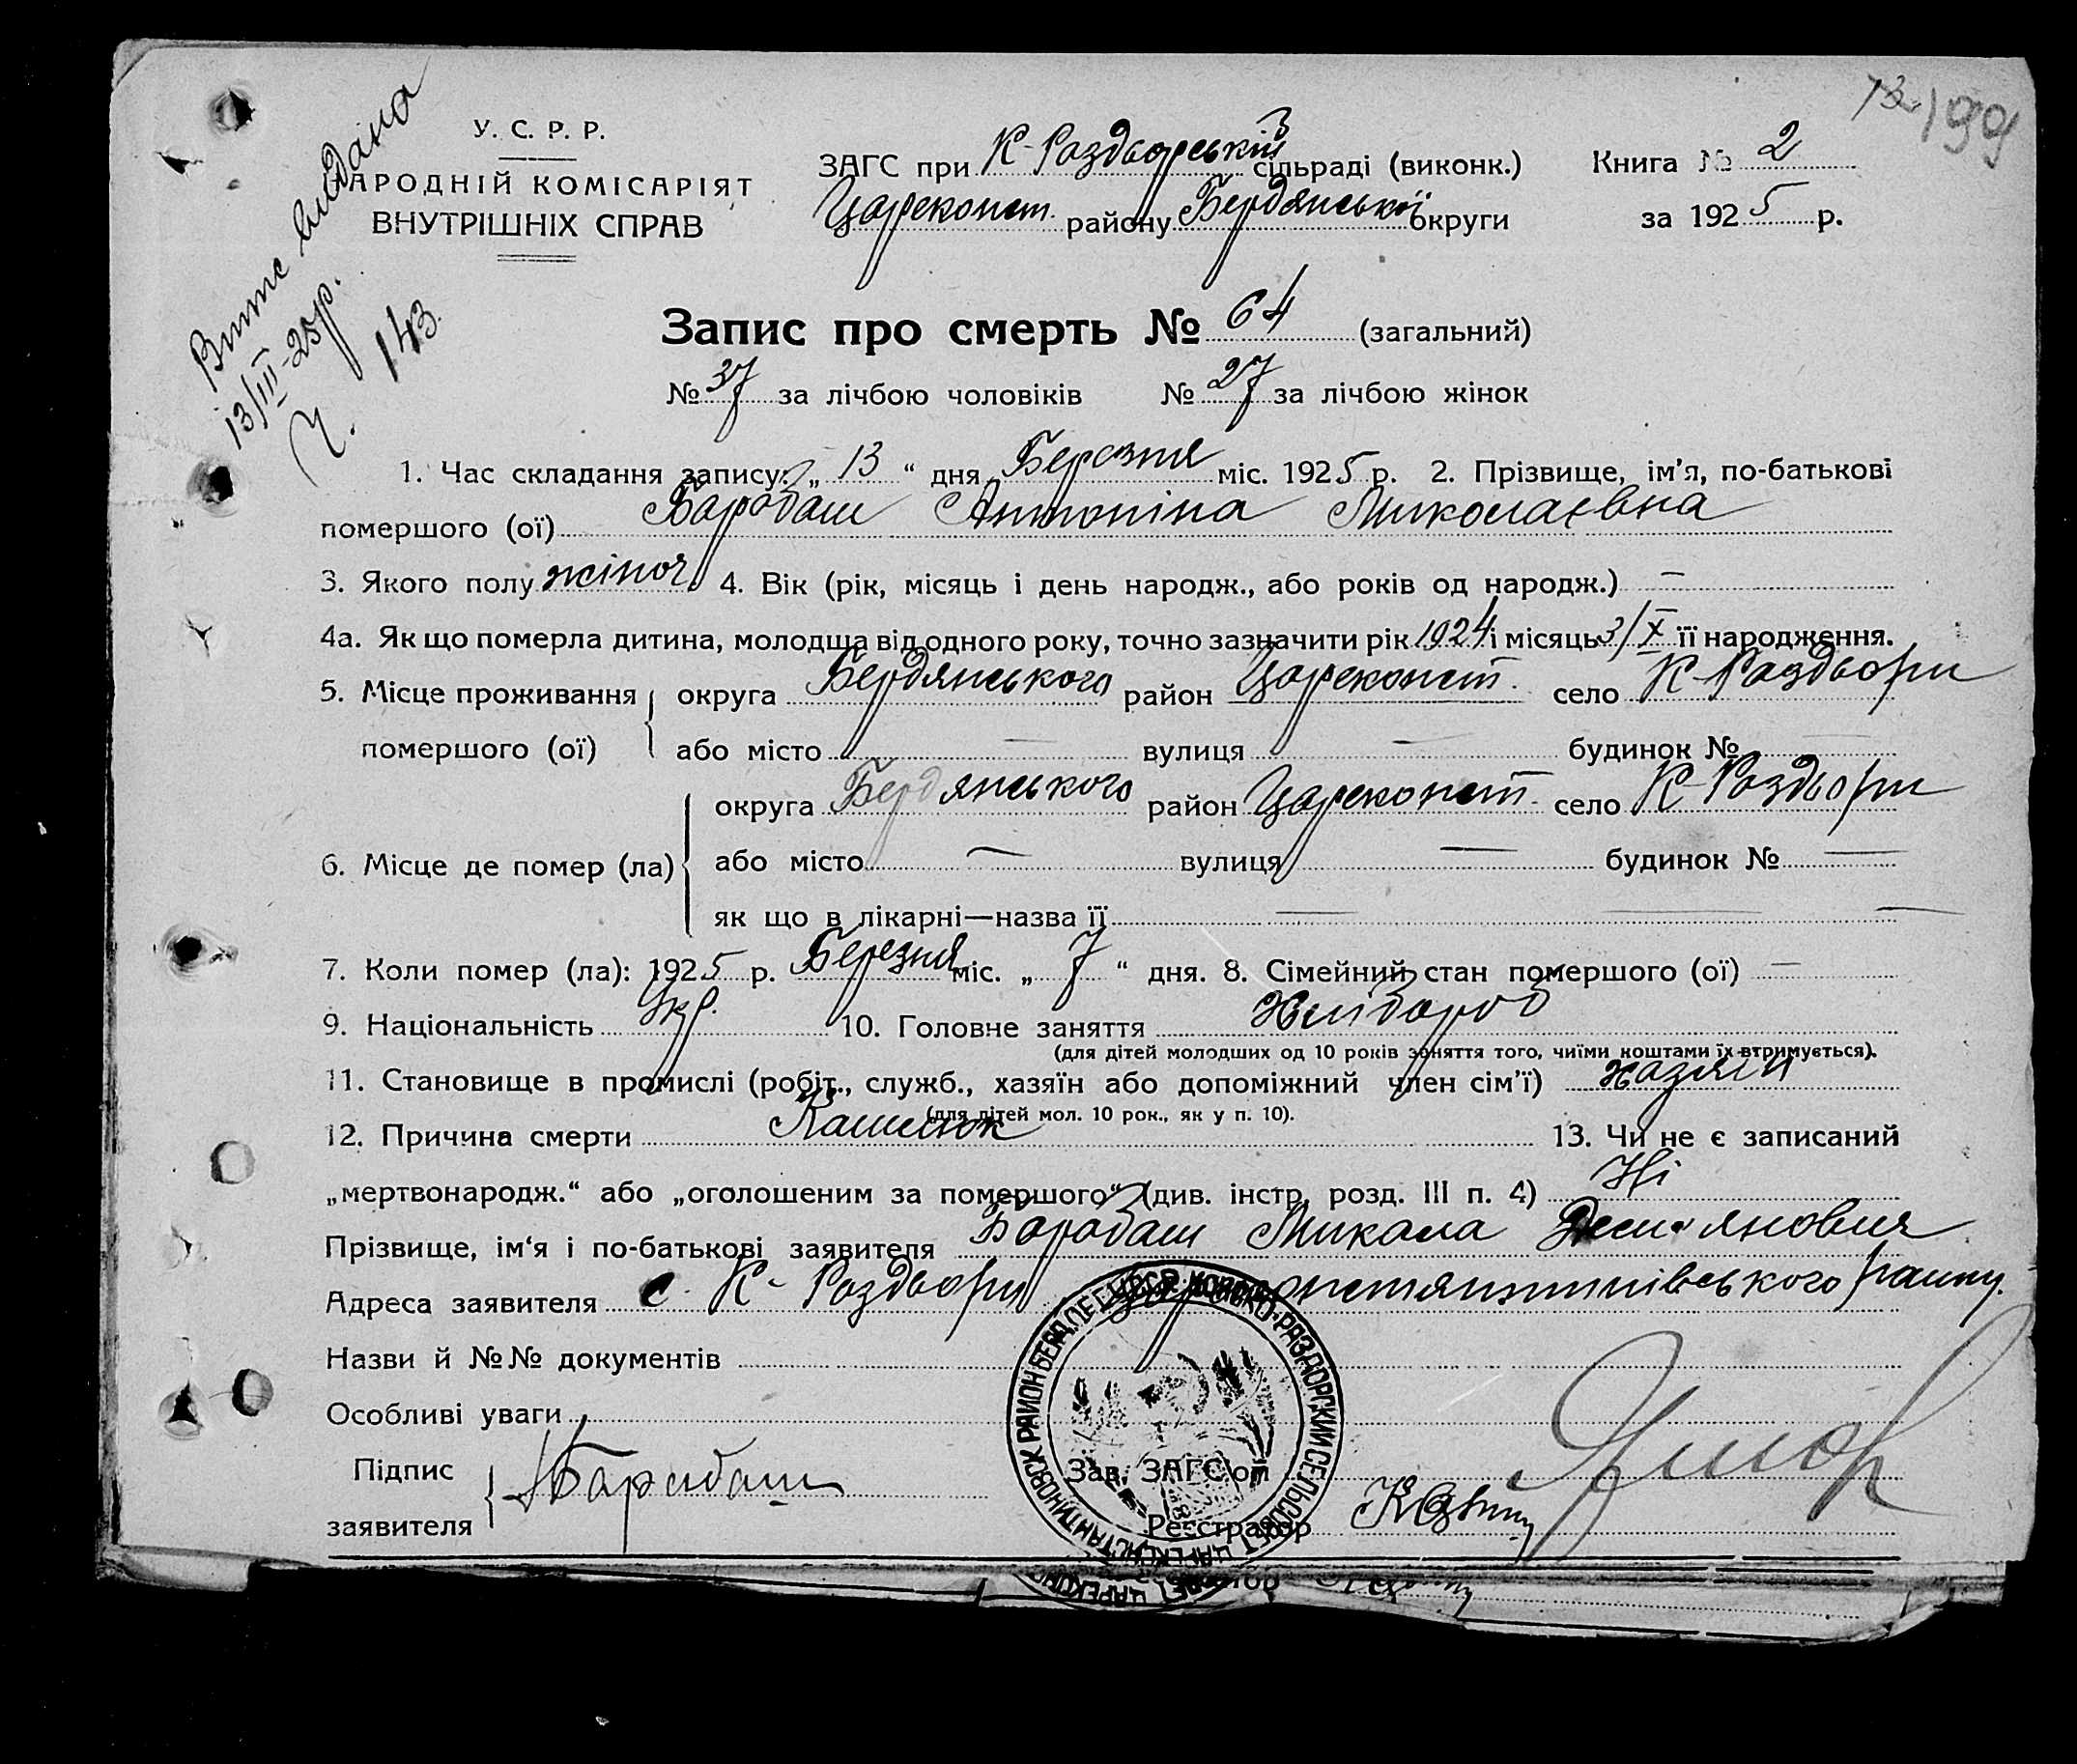 13 199
Витис видано
13/III-25р.
Ч. 143.
У. С. Р. Р.
НАРОДНІЙ КОМІСАРІЯТ
ВНУТРІШНІХ СПРАВ
ЗАГС при К-Роздьорській сільраді (виконк.) Книга № 2
Царекост. району Бердянської округи за 1925 р.
Запис про смерть № 64 (загальний)
№ 37 за лічбою чоловіків № 27 за лічбою жінок
1. Час складання запису: „ 13 “ дня Березня міс. 1925 р. 2. Прізвище, ім'я, по-батькові
помершого (ої) Барабаш Антоніна Миколаєвна
3. Якого полу жіноч 4. Вік (рік, місяць і день народж., або років од народж.) —
4а. Як що померла дитина, молодща від одного року, точно зазначити рік 1924 і місяць 3/X її народження.
5. Місце проживання округа Бердянського район Цареконст. село К-Роздьори
помершого (ої) або місто — вулиця — будинок № —
округа Бердянського район Цареконст. село К-Роздьори
6. Місце де помер (ла) або місто — вулиця — будинок № —
як що в лікарні—назва її — — —
7. Коли помер (ла): 1925 р. Березня міс. „ 7 “ дня. 8. Сімейний стан помершого (ої) —
9. Національність Укр. 10. Головне заняття Хлібороб
(для дітей молодших од 10 років заняття того, чиїми коштами їх втримується).
11. Становище в промислі (робіт., служб., хазяїн або допоміжний член сім'ї) хазяїн
(для дітей мол. 10 рок., як у п. 10).
12. Причина смерти Кашлюк 13. Чи не є записаний
„мертвонародж.“ або „оголошеним за помершого“ (див. інстр. розд. III п. 4) Ні
Прізвище, ім'я і по-батькові заявителя Барабаш Микола Демьянович
Адреса заявителя с. К-Роздьори Цареконстянтинівського району.
Назви й №№ документів
Особливі уваги
Підпис
заявителя Барабаш
Зав. ЗАГС'ом
Реєстратор